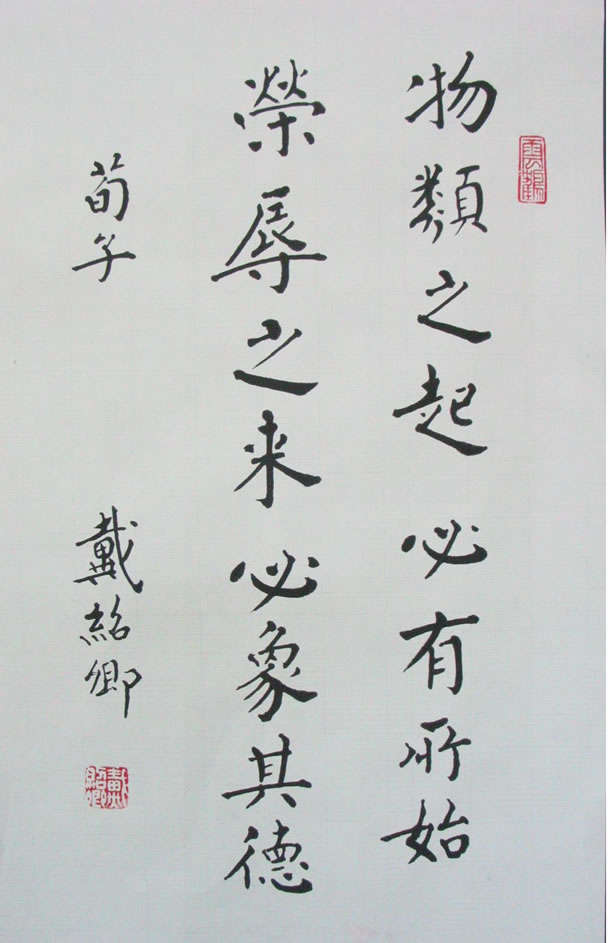 物類之起必有所始
榮辱之来必象其德
荀子
戴紹卿